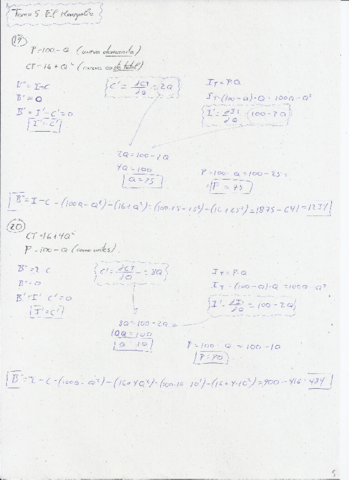 Tema 5 El Monopolio
19
P=100-Q (curva demanda)
CT=16+Q² (curva coste total)
B=I-C
B'=0
B'=I'-C'=0
I'=C'
C'=dCT/dQ=2Q
IT=P·Q
IT=(100-Q)·Q=100Q-Q²
I'=dIT/dQ=100-2Q
2Q=100-2Q
4Q=100
Q=25
P=100-Q=100-25=
P=75
B=I-C=(100Q-Q²)-(16+Q²)=(100·25-25²)-(16+25²)=1875-641=1234
20
CT=16+4Q²
P=100-Q
B=I-C
B'=0
B'=I'-C'=0
I'=C'
C'=dCT/dQ=8Q
IT=P·Q
IT=(100-Q)·Q=100Q-Q²
I'=dIT/dQ=100-2Q
8Q=100-2Q
10Q=100
Q=10
P=100-Q=100-10
P=90
B=I-C=(100Q-Q²)-(16+4Q²)=(100·10-10²)-(16+4·10²)=900-416=484